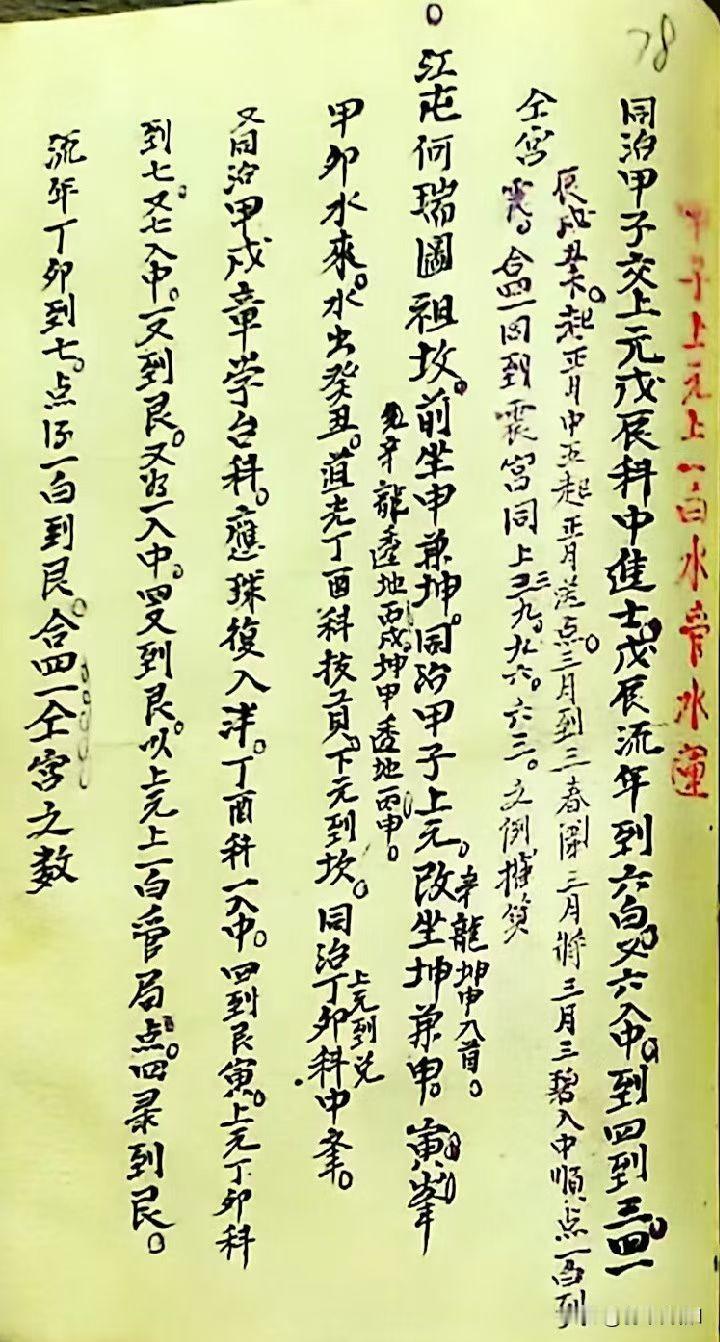 78
甲子上元上一白水管水運
同治甲子交上元戊辰科中進士。戊辰流年到六白。又六入中。到四到三。四一
辰戌丑未。起正月中五起正月逆点。三月到三春闈三月將三月三碧入中順点一白到
仝宮震。合四一同到震宮同上三九。九六。六三。之例推算
江屯何瑞圖祖坟。前坐申兼坤。同治甲子上元。改坐坤兼申。寅峯
辛龍坤申入首。
辛龍透地丙戌。坤甲透地丙申。
甲卯水來。水出癸丑。道光丁酉科拔貢。下元到坎。同治丁卯科中峯。
上元到兌
又同治甲戌章学台科。應珠復入泮。丁酉科一入中。四到艮寅。上元丁卯科
到七。又七入中。一又到艮。又以一入中。四又到艮。以上元上一白管局点。四录到艮。
流年丁卯到七。点得一白到艮。合四一仝宮之数